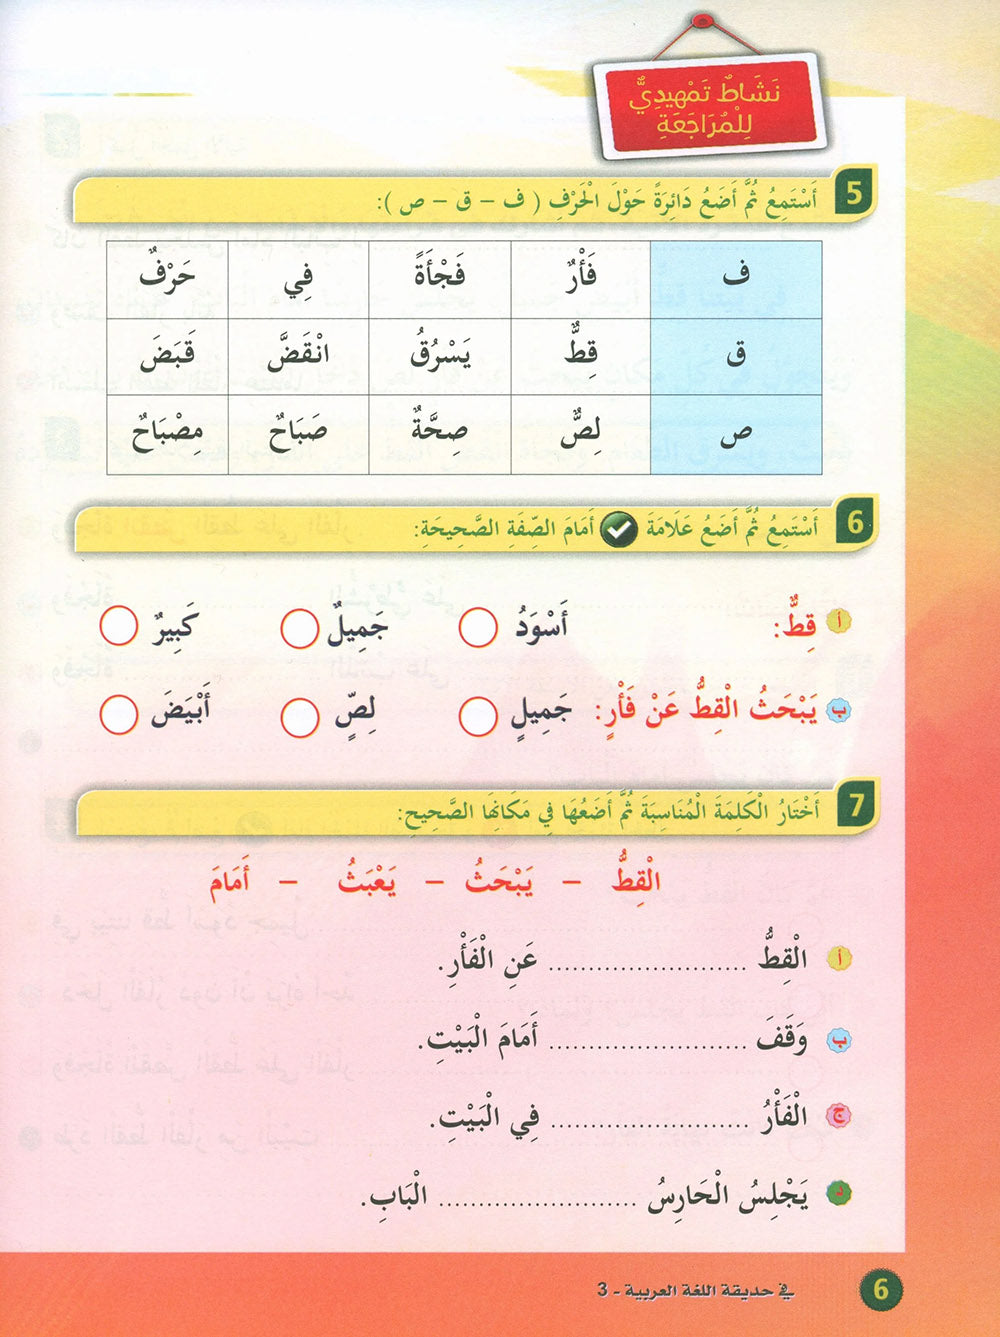 نَشَاطٌ تَمْهِيدِيٌّ
لِلْمُرَاجَعَةِ
5 أَسْتَمِعُ ثُمَّ أَضَعُ دَائِرَةً حَوْلَ الْحَرْفِ ( ف – ق – ص ):
ف فَأْرٌ فَجْأَةً فِي حَرْفٌ
ق قِطٌّ يَسْرُقُ انْقَضَّ قَبَضَ
ص لِصٌّ صِحَّةٌ صَبَاحٌ مِصْبَاحٌ
6 أَسْتَمِعُ ثُمَّ أَضَعُ عَلَامَةَ ✓ أَمَامَ الصِّفَةِ الصَّحِيحَةِ:
أ قِطٌّ: أَسْوَدُ جَمِيلٌ كَبِيرٌ
ب يَبْحَثُ الْقِطُّ عَنْ فَأْرٍ: جَمِيلٍ لِصٍّ أَبْيَضَ
7 أَخْتَارُ الْكَلِمَةَ الْمُنَاسِبَةَ ثُمَّ أَضَعُهَا فِي مَكَانِهَا الصَّحِيحِ:
الْقِطُّ – يَبْحَثُ – يَعْبَثُ – أَمَامَ
أ الْقِطُّ ......................... عَنِ الْفَأْرِ.
ب وَقَفَ ......................... أَمَامَ الْبَيْتِ.
ج الْفَأْرُ ......................... فِي الْبَيْتِ.
د يَجْلِسُ الْحَارِسُ ......................... الْبَابِ.
6 في حديقة اللغة العربية - 3